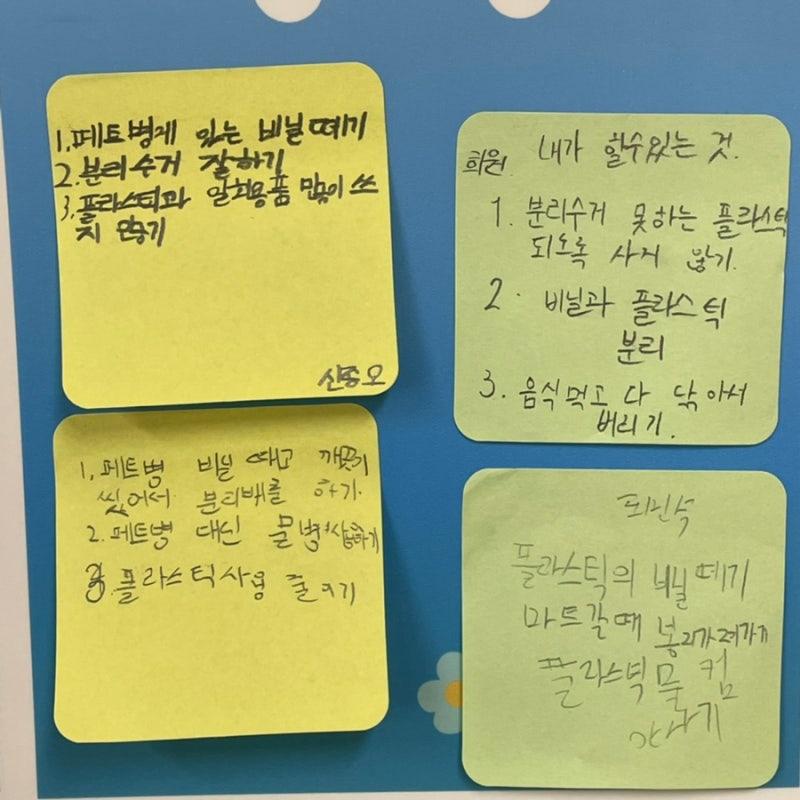 1. 페트병게 있는 비닐 떼기
2. 분리수거 잘하기
3. 플라스틱과 일회용품 많이 쓰
지 않기
1. 페트병 비닐 떼고 깨끗이
씻어서 분리배출 하기.
2. 페트병 대신 물병 사용하기
3. 플라스틱 사용 줄이기
희원 내가 할수있는 것.
1. 분리수거 못하는 플라스틱
되도록 사지 않기.
2. 비닐과 플라스틱
분리
3. 음식먹고 다 닦아서
버리기.
플라스틱의 비닐 떼기
마트갈때
플라스틱 물 컵